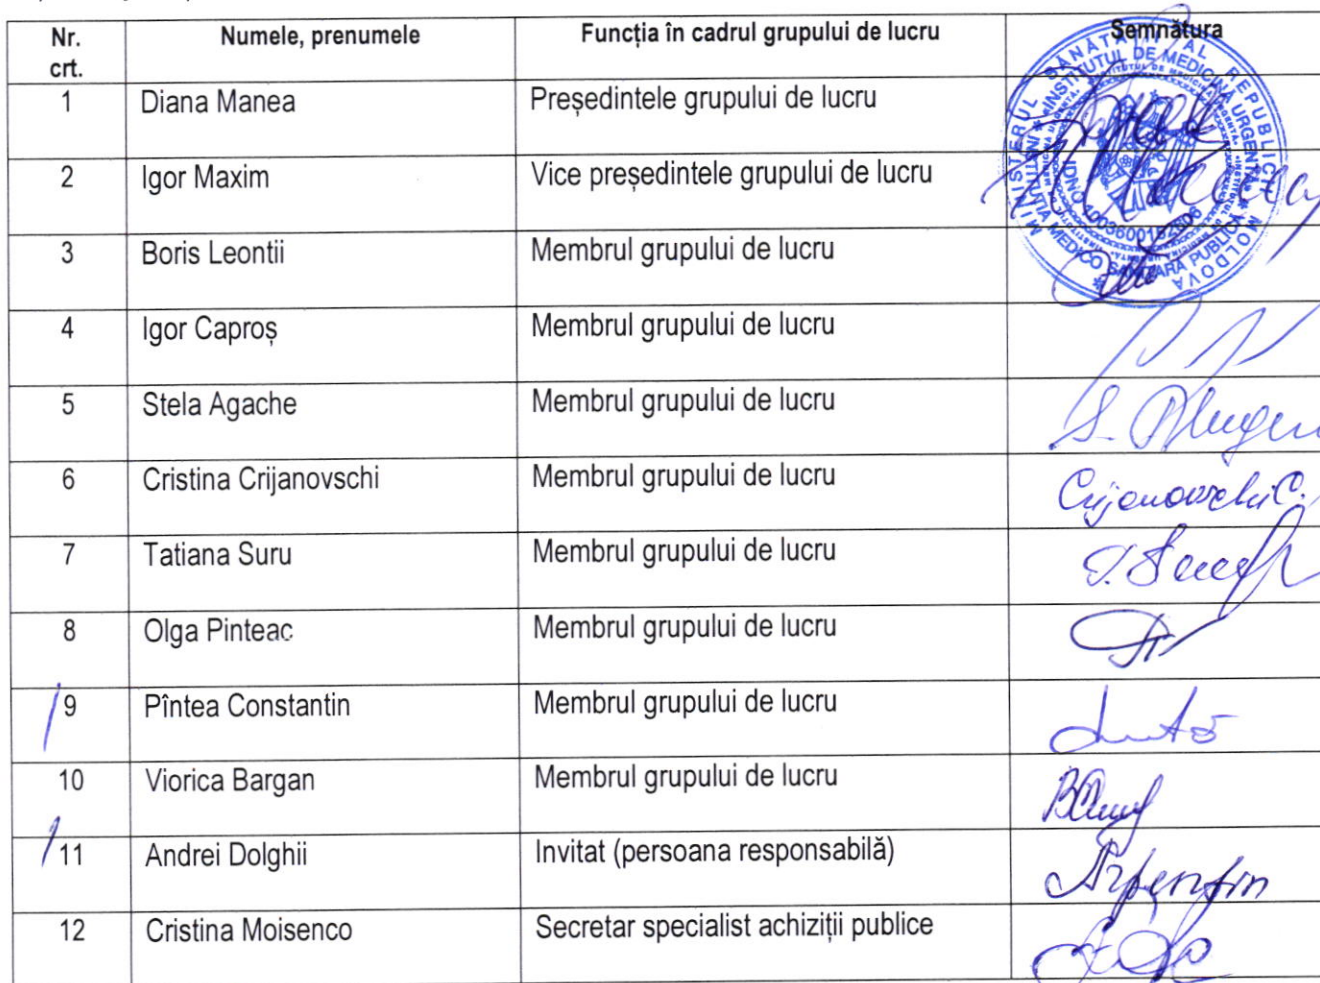 Nr. crt. Numele, prenumele Funcția în cadrul grupului de lucru Semnătura
1 Diana Manea Președintele grupului de lucru
2 Igor Maxim Vice președintele grupului de lucru
3 Boris Leontii Membrul grupului de lucru
4 Igor Caproș Membrul grupului de lucru
5 Stela Agache Membrul grupului de lucru
6 Cristina Crijanovschi Membrul grupului de lucru Crijanovschi C.
7 Tatiana Suru Membrul grupului de lucru
8 Olga Pinteac Membrul grupului de lucru
9 Pîntea Constantin Membrul grupului de lucru
10 Viorica Bargan Membrul grupului de lucru
11 Andrei Dolghii Invitat (persoana responsabilă)
12 Cristina Moisenco Secretar specialist achiziții publice
MINISTERUL SĂNĂTĂȚII AL REPUBLICII MOLDOVA
INSTITUTUL DE MEDICINĂ URGENTĂ